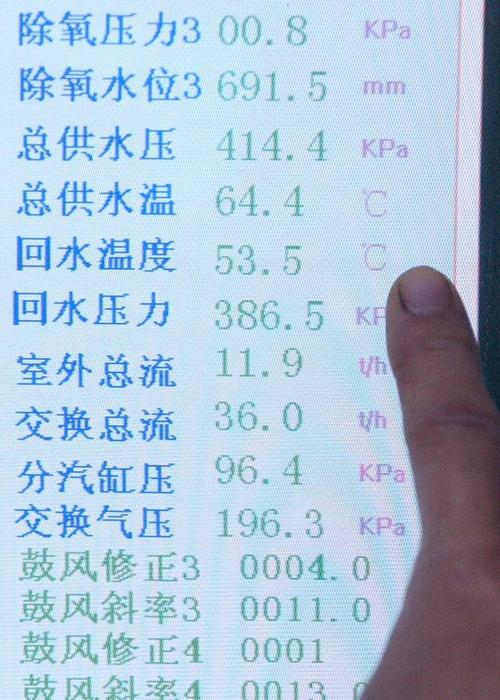 除氧压力3 00.8 KPa
除氧水位3 691.5 mm
总供水压 414.4 KPa
总供水温 64.4 ℃
回水温度 53.5 ℃
回水压力 386.5 KP
室外总流 11.9 t/h
交换总流 36.0 t/h
分汽缸压 96.4 KPa
交换气压 196.3 KPa
鼓风修正3 0004.0
鼓风斜率3 0011.0
鼓风修正4 0001
鼓风斜率4 0013.0